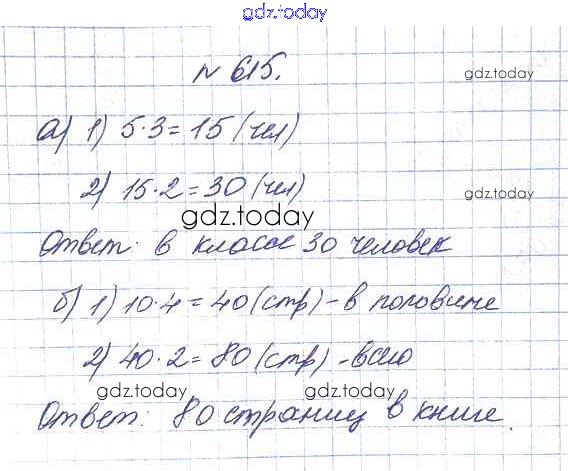 gdz.today
№ 615.
gdz.today
а) 1) 5·3=15 (чел)
2) 15·2=30 (чел)
gdz.today
gdz.today
Ответ: в классе 30 человек
б) 1) 10·4=40 (стр)-в половине
2) 40·2=80 (стр)-всего
gdz.today
gdz.today
Ответ: 80 страниц в книге.